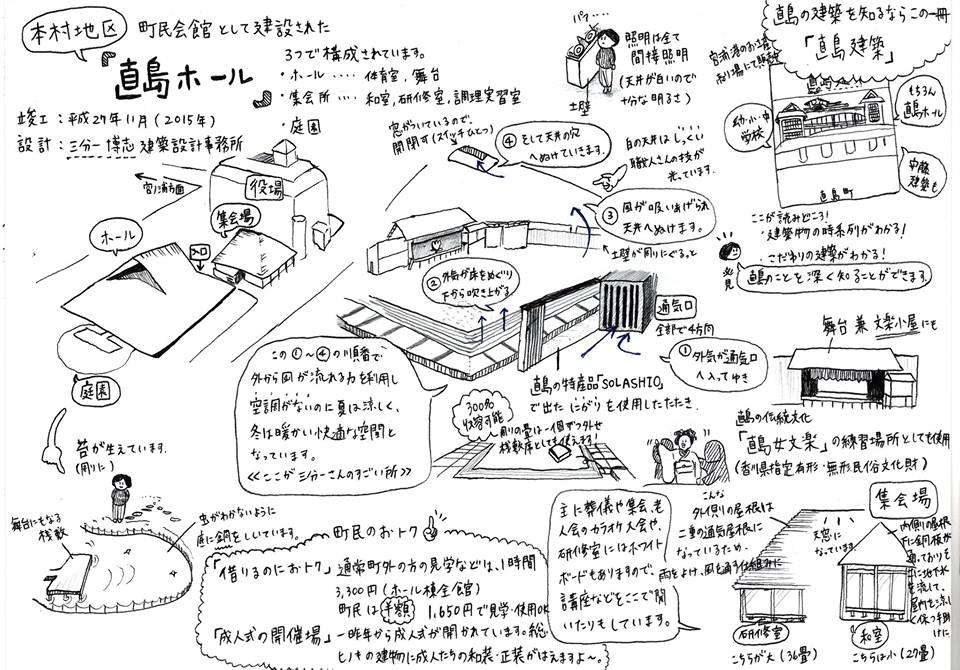 本村地区
町民会館として建設された
『直島ホール』
3つで構成されています。
・ホール ‥‥ 体育室、舞台
・集会所 ‥‥ 和室、研修室、調理実習室
・庭園
竣工:平成27年11月(2015年)
設計:三分一 博志 建築設計事務所
宮ノ浦方面
役場
集会場
入口
ホール
庭園
苔が生えています。
(周りに)
パァ…
照明は全て
間接照明
(天井が白いので
十分な明るさ)
土壁
窓がついているので、
開閉す(スイッチひとつ)
④そして天井の穴
へぬけていきます。
白の天井はしっくい
職人さんの技が
光っています。
③風が吸いあげられ
天井へぬけます。
土壁が周りにぐるっと
②外気が床をめぐり
下から吹き上がる
通気口
全部で4方向
①外気が通気口
へ入ってゆき
直島の特産品「SOLASHIO」
で出たにがりを使用したたたき。
300%
収容可能
周りの畳は一個ずつ外せ
桟敷席としても使えます!
この①~④の順番で
外から風が流れる力を利用し
空調がないのに夏は涼しく、
冬は暖かい快適な空間と
なっています。
≪ここが三分一さんのすごい所≫
直島の建築を知るならこの一冊
「直島建築」
宮浦港のお土産
売り場にて販売中
幼・小・中
学校
もちろん
直島ホール
安藤
建築も
直島町
ここが読みどころ!
・建築物の時系列がわかる!
・こだわりの建築がわかる!
発見
直島のことを深く知ることができます。
舞台兼文楽小屋にも
直島の伝統文化
「直島女文楽」の練習場所としても使用
(香川県指定有形・無形民俗文化財)
舞台にもなる
桟敷
虫がわかないように
底に銅をしいています。
町民のおトク
「借りるのにおトク」 通常町外の方の見学などは、1時間
3,300円(ホール棟全館)
町民は半額 1,650円で見学・使用OK
「成人式の開催場」 一昨年から成人式が開かれています。総
ヒノキの建物に成人たちの和装・正装がはえますよ~。
主に葬儀や集会、老
人会のカラオケ大会や、
研修室にはホワイト
ボードもありますので、
講座などをここで開
いたりもしています。
集会場
こんな
外イ側りの屋根は
二重の通気屋根に
なっているため、
雨をよけ、風を通す仕組みに
天窓に
なっています。
内側の屋根
研修室
こちらが大(36畳)
和室
こちらは小(27畳)